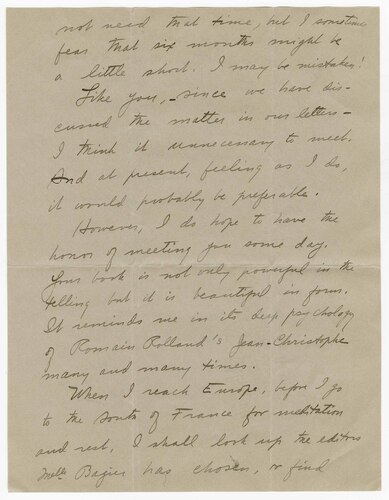 not need that time, but I sometimes
fear that six months might be
a little short. I may be mistaken!
Like you, - since we have dis-
cussed the matter in our letters -
I think it unnecessary to meet.
And at present, feeling as I do,
it would probably be preferable.
However, I do hope to have the
honor of meeting you some day.
Your book is not only powerful in the
telling but it is beautiful in form.
It reminds me in its deep psychology
of Romain Rolland's Jean-Christophe
many and many times.
When I reach Europe, before I go
to the South of France for meditation
and rest, I shall look up the editors
Mlle Bagier has chosen, or find